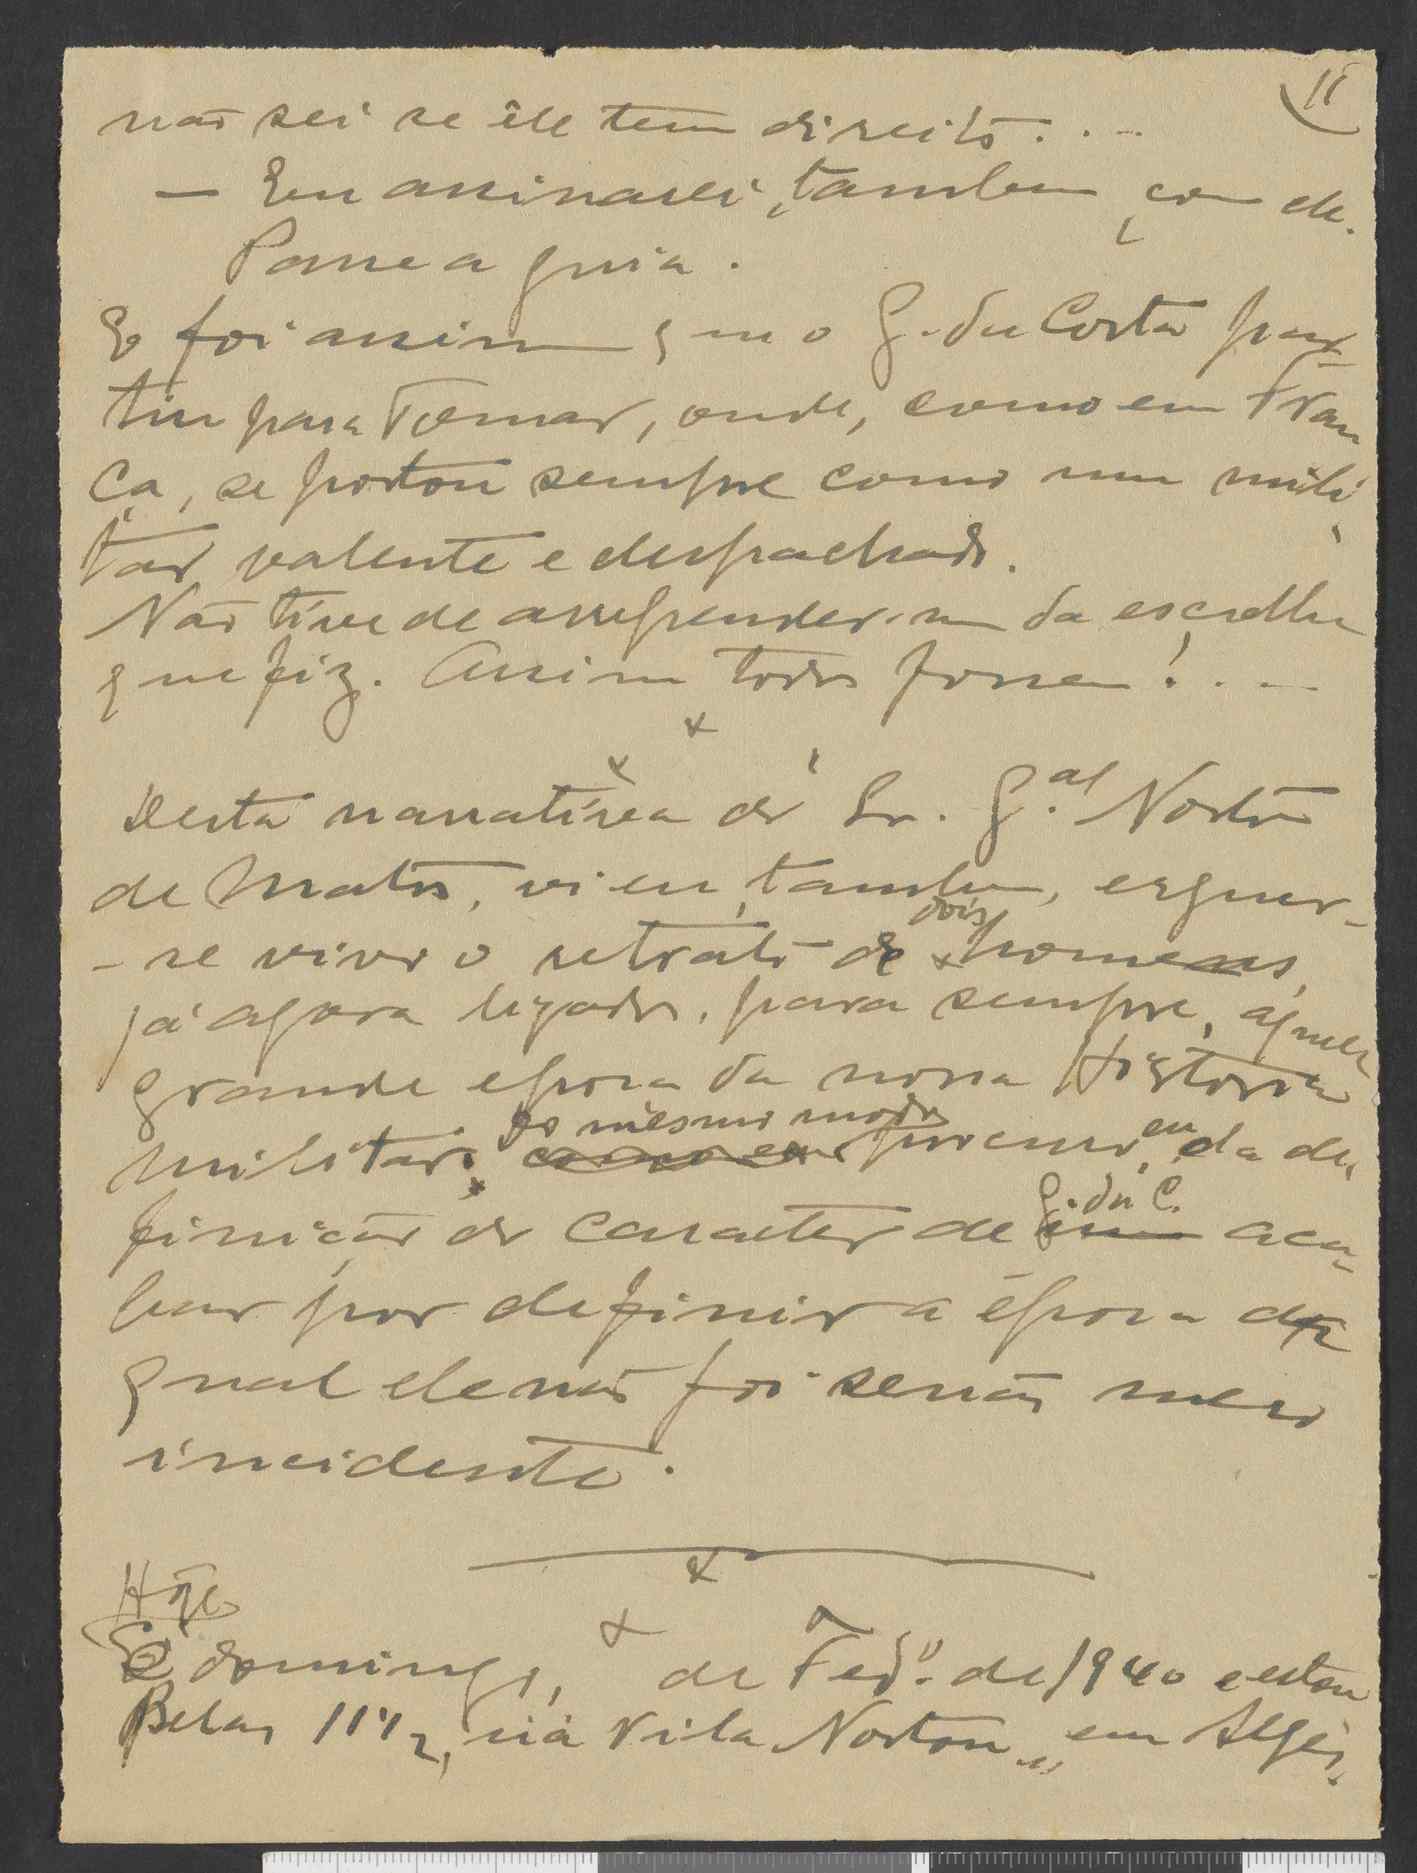 11
não sei se êle tem direito...
— Eu assinarei, tambem com ele.
Passe a guia.
E foi assim que o G. da Costa par-
tiu para Tomar, onde, como em Fran
ça, se portou sempre como um mili
tar valente e despachado.
Não tive de arrepender-me da escolha
que fiz. Assim todos fossem!...
x
x
Desta narrativa do Sr. G.al Norton
de Matos, vi eu, tambem, erguer-
-se vivo o retrato de dois homens,
já agora ligados, para sempre, áquela
grande epoca da nossa Historia
Militar. Do mesmo modo procuro, eu, da de
finição do caracter de G. da C. aca-
bar por definir a época da
qual ele não foi senão mero
incidente.
x
x
Hoje
É domingo, de Fev.º de 1940 e estou
Belas 11 1/2, na Vila Norton, em Algés.